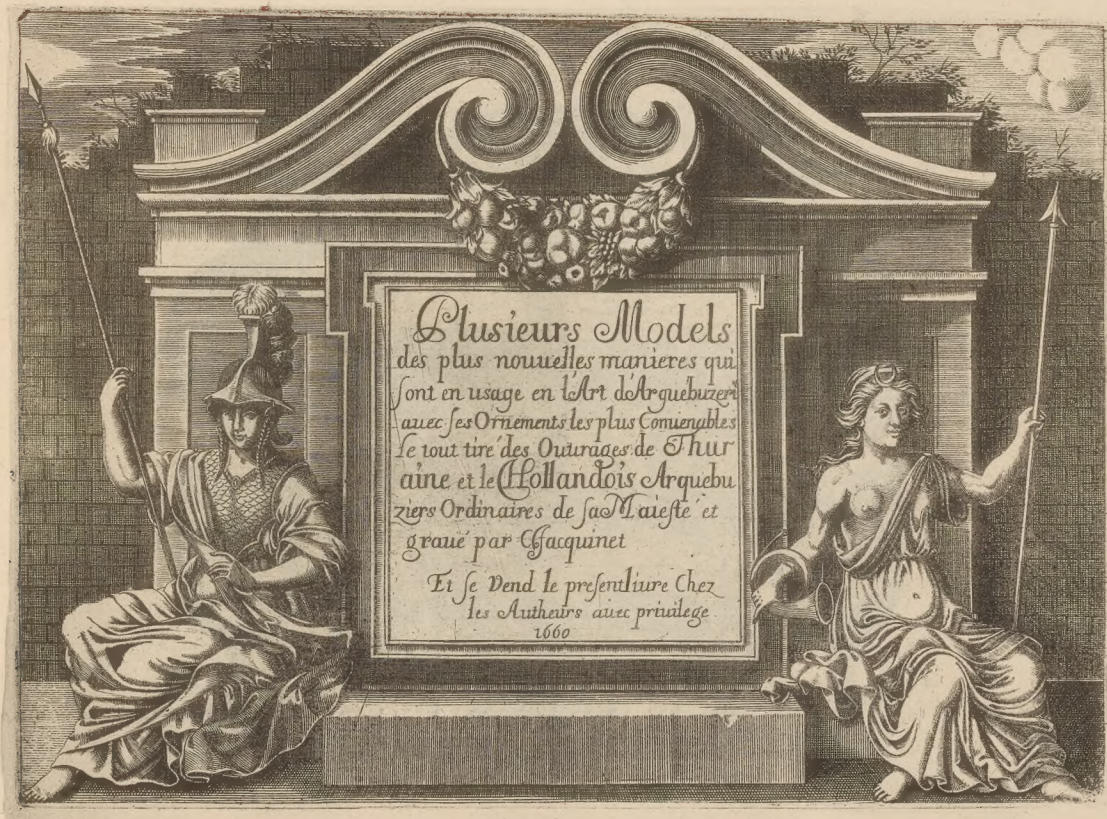 Plusieurs Models
des plus nouuelles manieres qui
sont en usage en l'Art d'Arquebuzeri
auec ses Ornements les plus Conuenables
Le tout tiré des Ouurages de Thur
aine et le Hollandois Arquebu
ziers Ordinaires de sa Maiesté et
graué par C Jacquinet
Et se Vend le present liure Chez
les Autheurs auec priuilege
1660